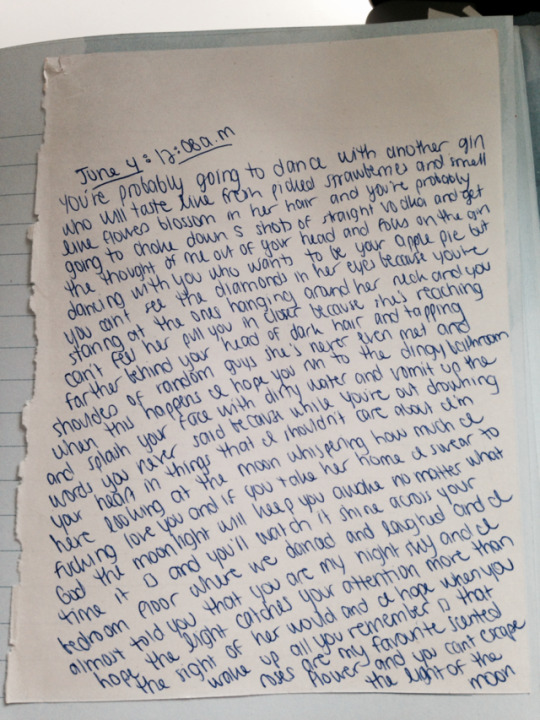 June 4: 12:08 a.m
You're probably going to dance with another girl
who will taste like fresh picked strawberries and smell
like flowers blossom in her hair and you're probably
going to choke down 5 shots of straight vodka and get
the thought of me out of your head and focus on the girl
dancing with you who wants to be your apple pie but
you can't see the diamonds in her eyes because you're
staring at the ones hanging around her neck and you
can't feel her pull you in closer because she's reaching
farther behind your head of dark hair and tapping
shoulders of random guys she's never even met and
when this happens I hope you run to the dingy bathroom
and splash your face with dirty water and vomit up the
words you never said because while you're out drowning
your heart in things that I shouldn't care about I'm
here looking at the moon whispering how much I
fucking love you and if you take her home I swear to
God the moonlight will keep you awake no matter what
time it is and you'll watch it shine across your
bedroom floor where we danced and laughed and I
almost told you that you are my night sky and I
hope the light catches your attention more than
the sight of her would and I hope when you
wake up all you remember is that
roses are my favorite scented
flower and you can't escape
the light of the
moon